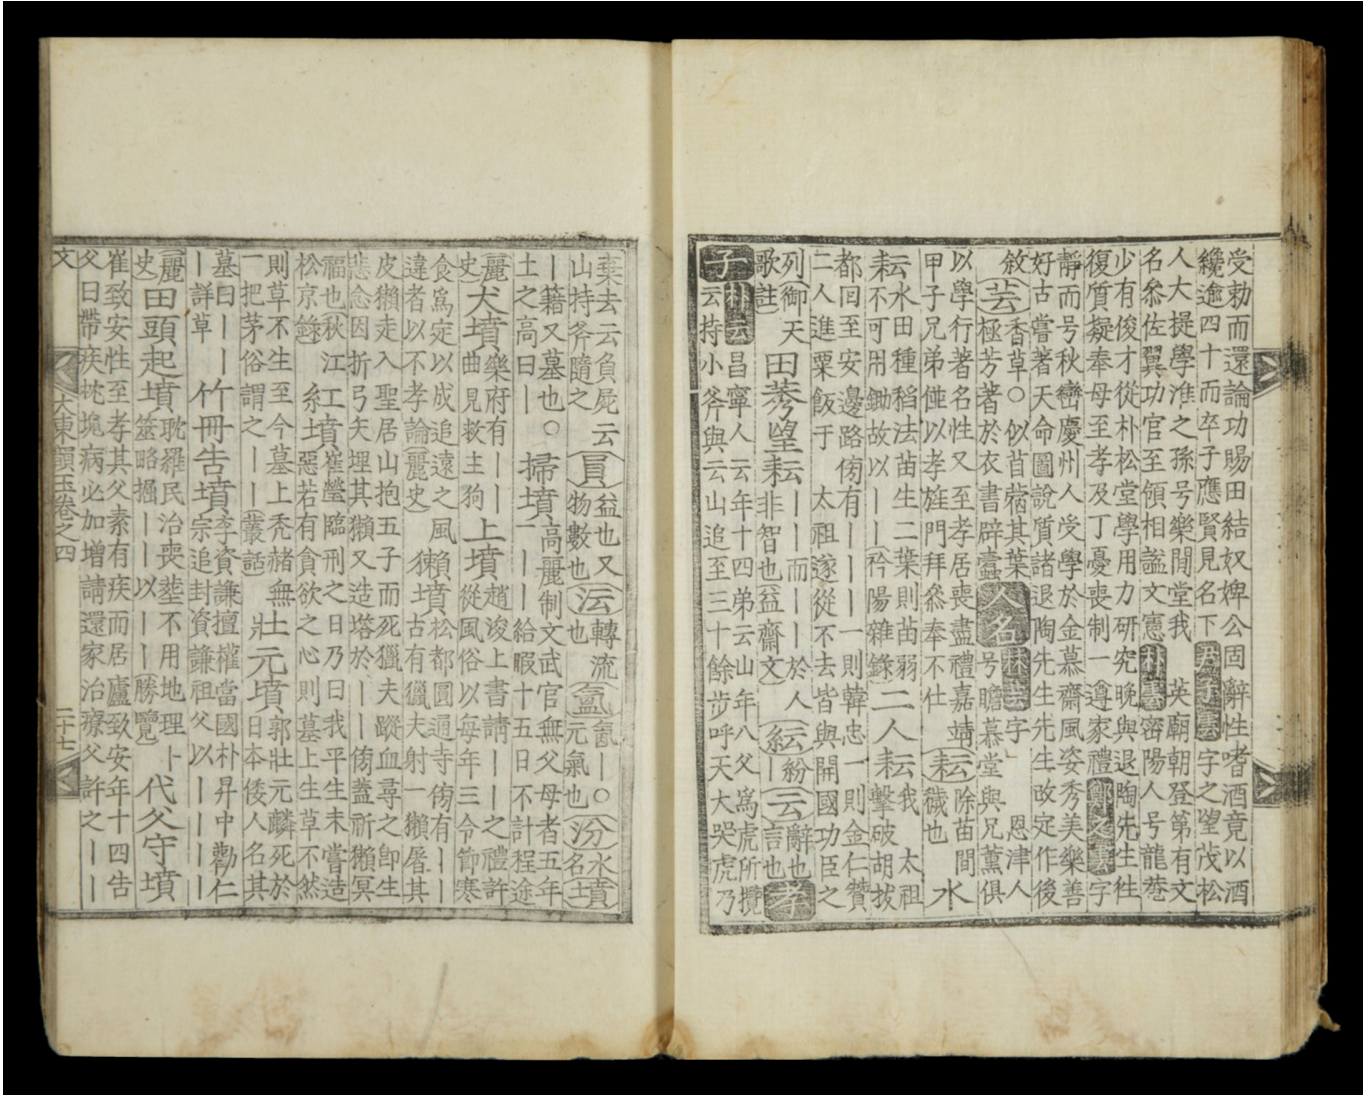 受勅而還論功賜田結奴婢公固辭性嗜酒竟以酒
纔逾四十而卒子應賢見名下 字之望茂松
人大提學淮之孫号樂閒堂我 英廟朝登第有文
名叅佐翼功官至領相謚文憲朴雲密陽人号龍巖
少有俊才從朴松堂學用力研究晚與退陶先生往
復質疑奉母至孝及丁憂喪制一遵家禮鄭之雲字
靜而号秋巒慶州人受學於金慕齋風姿秀美樂善
好古嘗著天命圖說質諸退陶先生先生改定作後
敘芸香草○似苜蓿其葉極芳著於衣書辟蠹人名林芸字 恩津人号瞻慕堂與兄薰俱
以學行著名性又至孝居喪盡禮嘉靖甲子兄弟俱以孝旌門拜叅奉不仕耘除苗間穢也水
耘水田種稻法苗生一葉則苗弱不可用鋤故以丨丨衿陽雜錄二人耘我 太祖擊破胡拔
都回至安邊路傍有丨丨一則韓忠一則金仁贊
二人進粟飯于 太祖遂從不去皆與開國功臣之
列御天歌註田莠望耘丨丨而丨丨於人非智也益齋文紜紛丨云言辭也孝
子朴云昌寧人云年十四弟云山年八父爲虎所攬
云持小斧與云山追至三十餘步呼天大哭虎乃
棄去云負屍云山持斧隨之員益也又物數也沄轉流也氳氤丨○元氣也汾水名墳
丨籍又墓也○土之高曰丨掃墳高麗制文武官無父母者五年丨丨給暇十五日不計程途
麗史犬墳樂府有丨丨曲見救主狗上墳趙浚上書請丨丨之禮許從風俗以每年三令節寒
食爲定以成追遠之風違者以不孝論麗史獺墳松都圓通寺傍有丨丨古有獵夫射一獺屠其
皮獺走入聖居山抱五子而死獵夫蹤血尋之卽生
悲念因折弓矢埋其獺又造塔於丨丨傍蓋祈獺冥
福也秋江松京錄紅墳崔瑩臨刑之日乃曰我平生未嘗造惡若有貪欲之心則墓上生草不然
則草不生至今墓上禿赭無一把茅俗謂之丨丨叢話壯元墳郭壯元麟死於日本倭人名其
墓曰丨丨丨詳草竹冊告墳李資謙擅權當國朴昇中勸仁宗追封資謙祖父以丨丨丨丨
麗史田頭起墳耽羅民治喪葬不用地理卜筮略掘丨丨以丨丨勝覽代父守墳
崔致安性至孝其父素有疾而居廬致安年十四告
父曰帶疾枕塊病必加增請還家治療父許之丨丨
文 大東韻玉卷之四 二十七